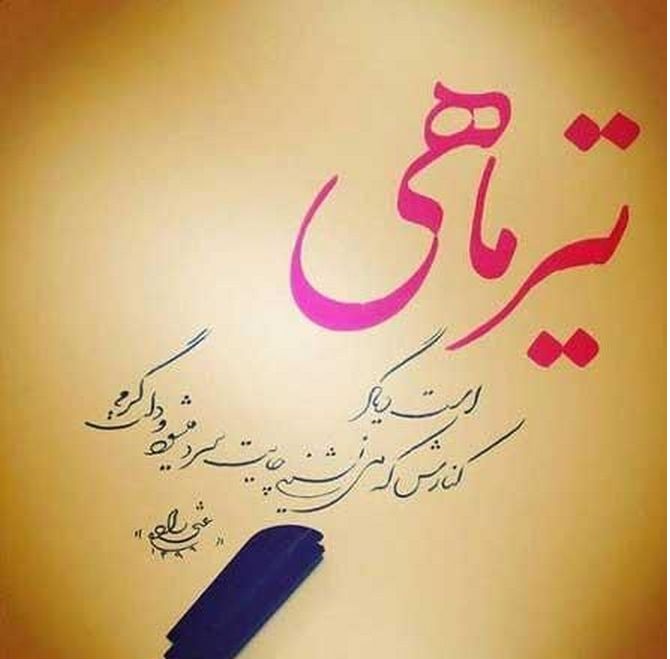 تیر ماهی
است دیگر
کنارش که می نشینی چایت سرد میشود و دلت گرم